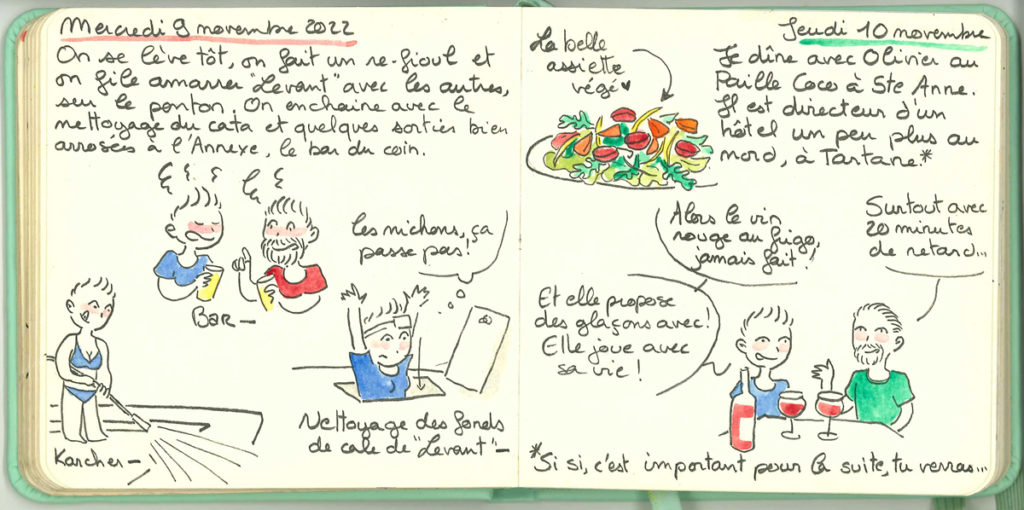 Mercredi 9 novembre 2022
On se lève tôt, on fait un re-fioul et
on file amarrer "Levant" avec les autres,
sur le ponton. On enchaine avec le
nettoyage du cata et quelques sorties bien
arrosées à l'Annexe, le bar du coin.
Bar –
Les nichons, ça
passe pas!
Karcher –
Nettoyage des fonds
de cale de "Levant" –
Jeudi 10 novembre
La belle
assiette
végé ♥
Je dîne avec Olivier au
Paille Coco à Ste Anne.
Il est directeur d'un
hôtel un peu plus au
nord, à Tartane.*
Alors le vin
rouge au frigo,
jamais fait!
Et elle propose
des glaçons avec!
Elle joue avec
sa vie!
Surtout avec
20 minutes
de retard...
*Si si, c'est important pour la suite, tu verras...